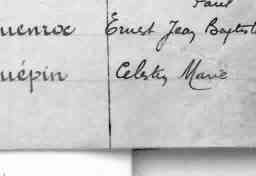 Paul
uenroc Ernest Jean Baptiste
uépin Celestin Marie